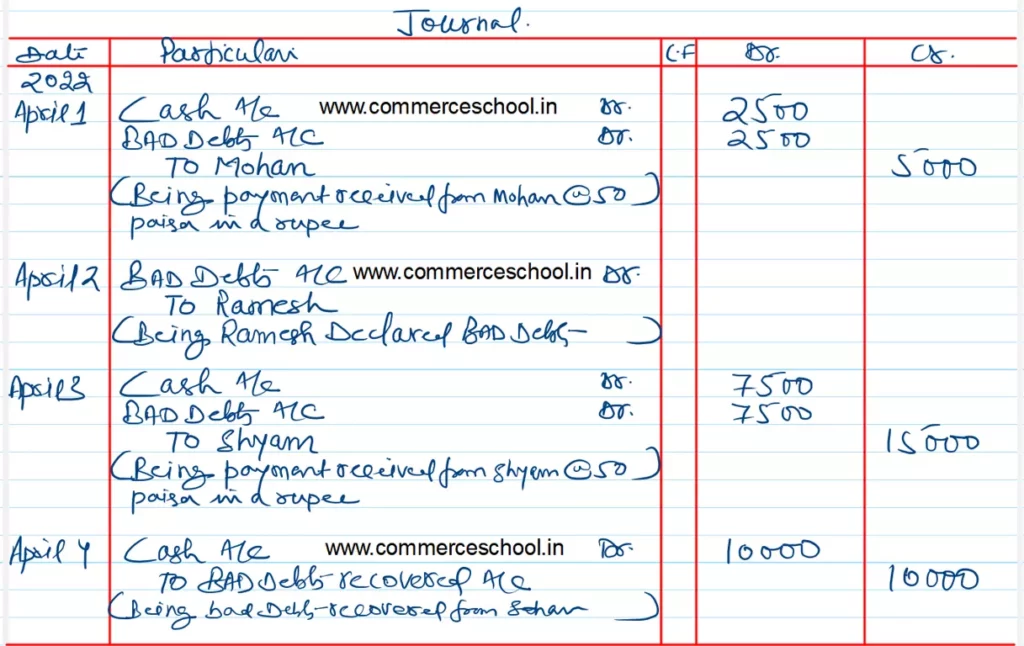 Journal.
Date Particulars C.F Dr. Cr.
2022
April 1 Cash A/c www.commerceschool.in Dr. 2500
BAD Debts A/C Dr. 2500
To Mohan 5000
(Being payment received from Mohan @ 50
paisa in a rupee)
April 2 BAD Debts A/C www.commerceschool.in Dr.
To Ramesh
(Being Ramesh Declared BAD Debts)
April 3 Cash A/c Dr. 7500
BAD Debts A/C Dr. 7500
To Shyam 15000
(Being payment received from Shyam @ 50
paisa in a rupee)
April 4 Cash A/c www.commerceschool.in Dr. 10000
To BAD Debts recovered A/c 10000
(Being bad Debts recovered from Sohan)